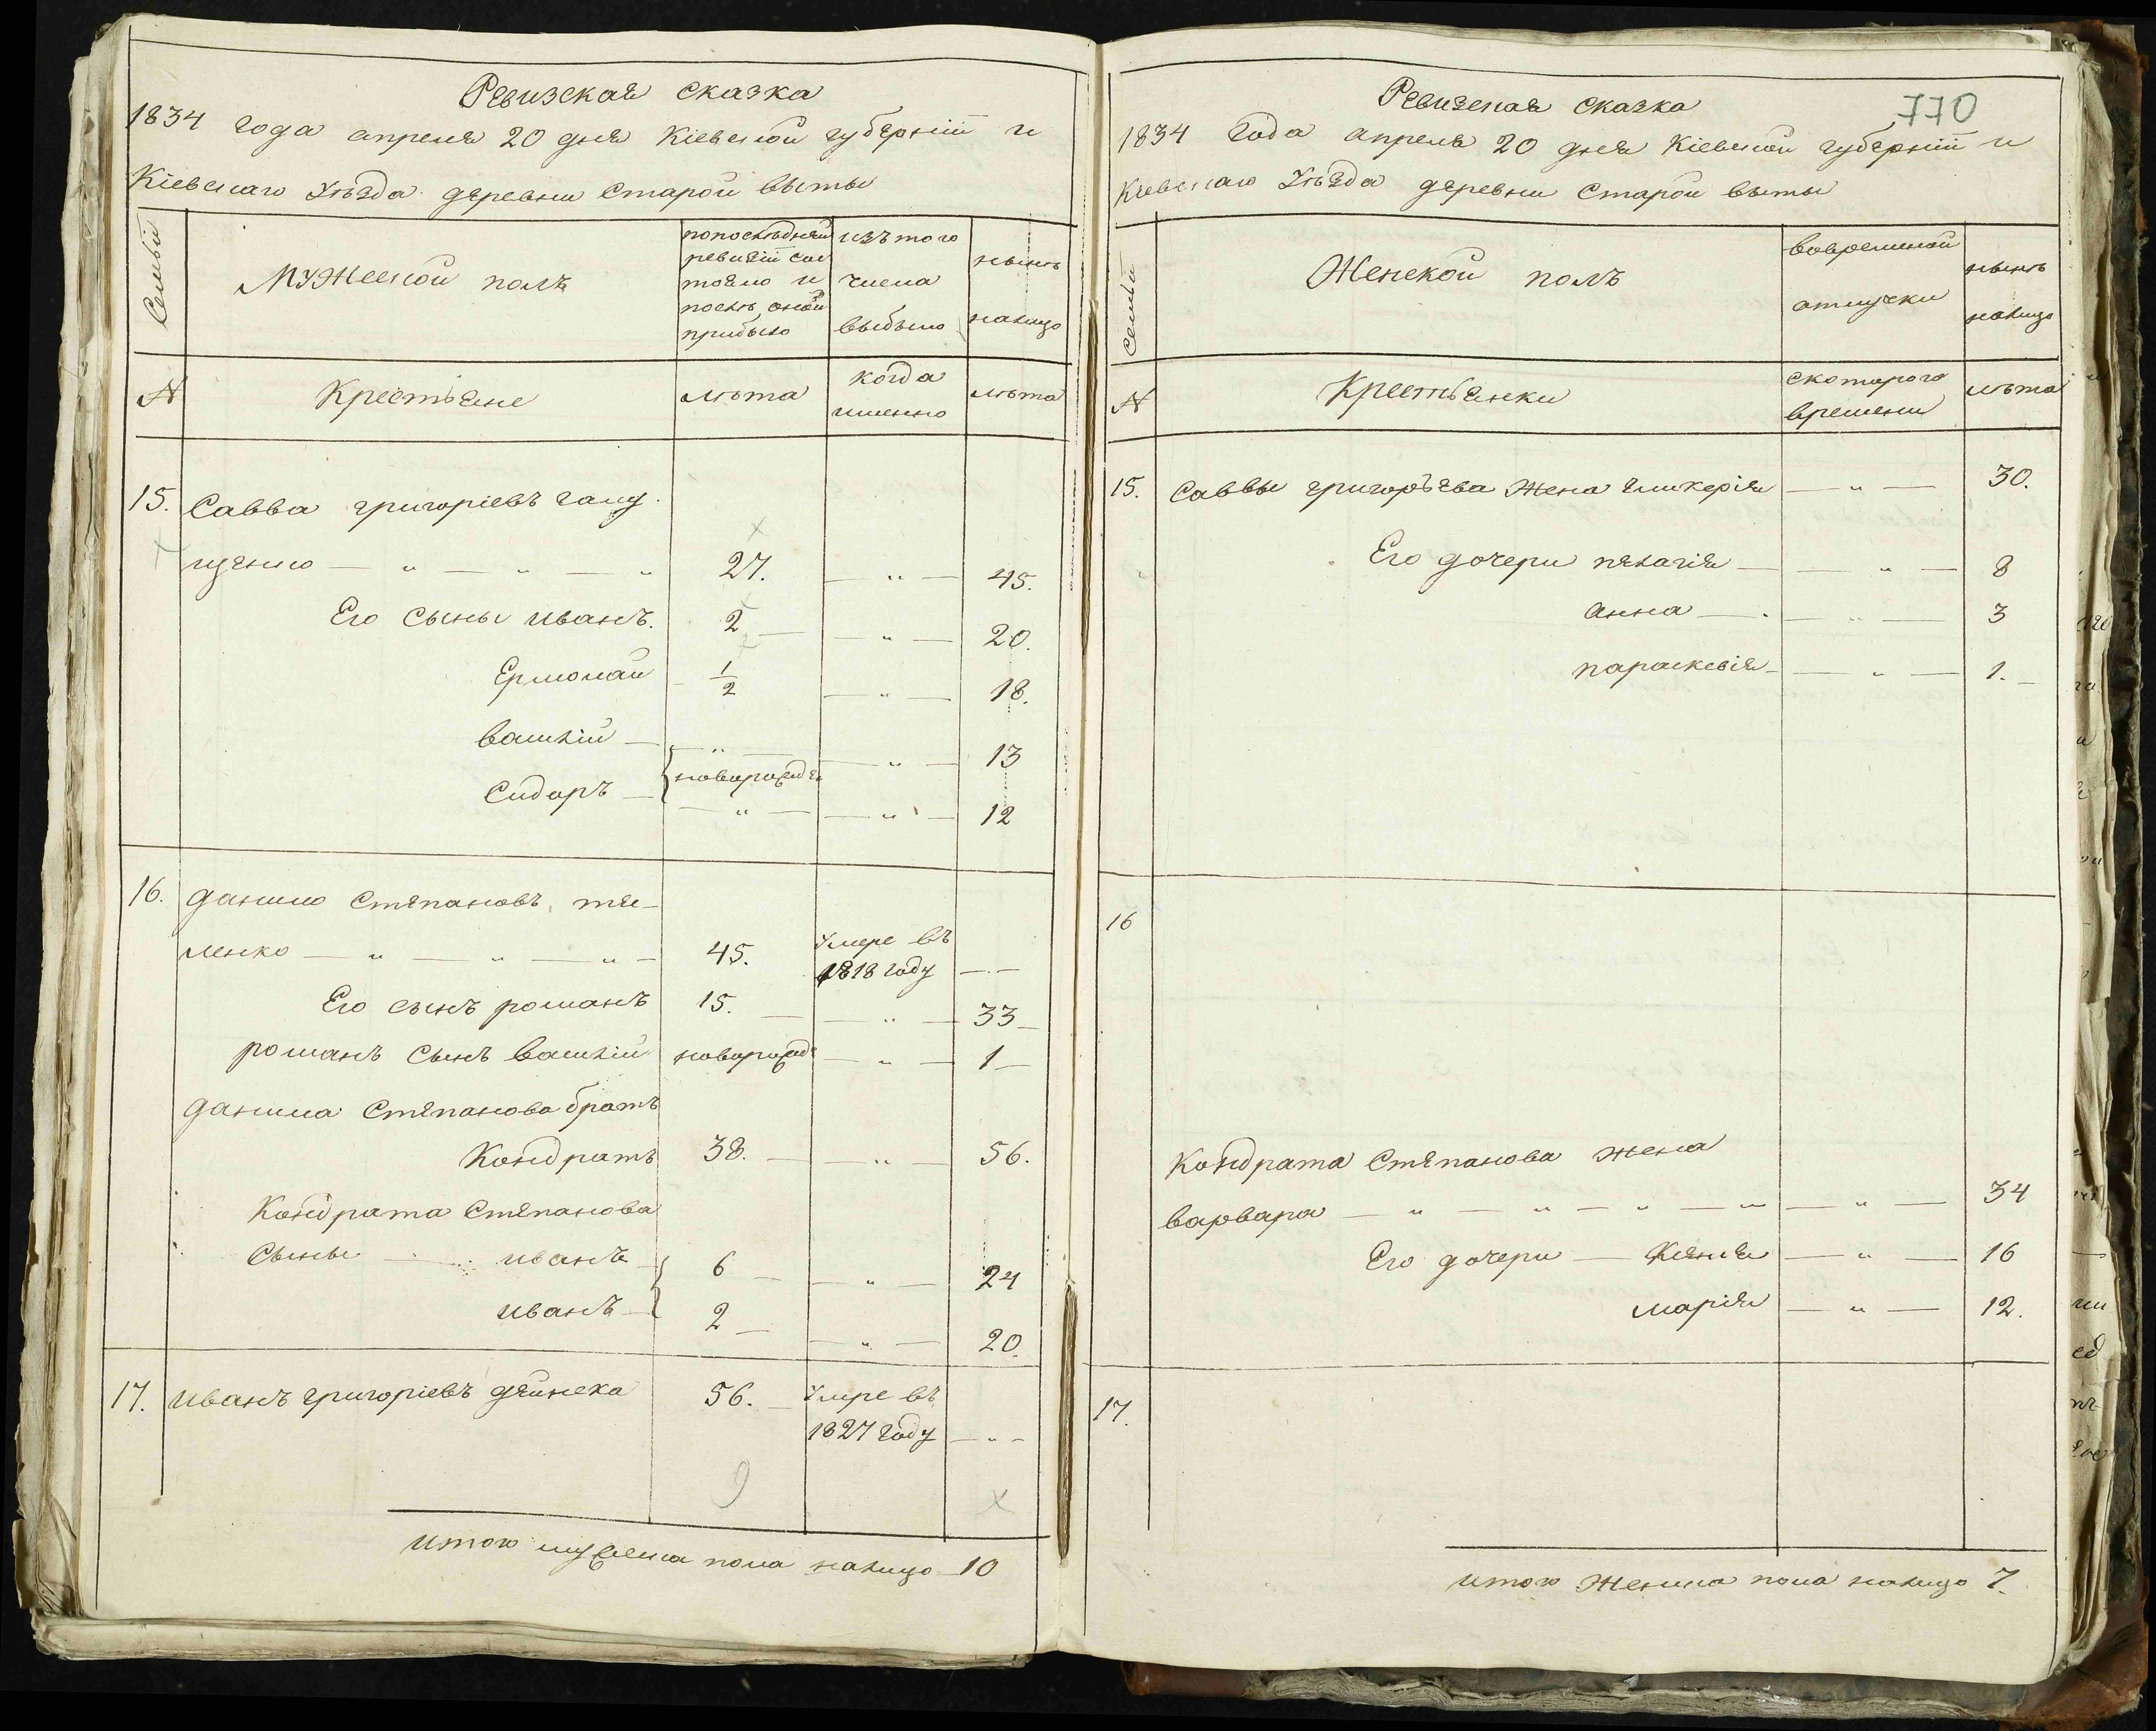 Ревизская сказка
1834 года апреля 20 дня Кіевской губерніи и
Кіевскаго Уѣзда деревни Старой Выты
Семьи
Мужеской полъ
попослѣдней
ревизіи сос
тояло и
послѣ оной
прибыло
изъ того
числа
выбыло
нынѣ
налицо
№
Крестьяне
лѣта
когда
именно
лѣта
15. Савва григоріевъ гану
щенко — " — " — " 27. — " — 45.
Его Сыны иванъ. 2 — — " — 20.
Ермолай 1/2 — " — 18.
Василій — — " — — " — 13
новорожден
Сидоръ — — " — — " — 12
16. данило Степановъ тие-
ленко — " — " — " — 45. Умре въ
1818 году — . —
Его сынъ романъ 15. — — " — 33
романъ Сынъ Василій новорожд — " — 1
данила Степанова братъ
Кондратъ 38. — — " — 56.
Кондрата Степанова
Сыны — иванъ 6 — — " — 24
иванъ 2 — — " — 20.
17. иванъ григоріевъ дейнека 56. — Умре въ
1827 году — " —
9
итого мужеска пола налицо 10
770
Ревизская сказка
1834 Года апреля 20 дня Кіевской губерніи и
Кіевскаго Уѣзда деревни Старой Выты
Семьи
Женской полъ
вовременой
отлучки
нынѣ
налицо
№
Крестьянки
скотораго
времени
лѣта
15. Саввы григорьева Жена гликерія — " — 30.
Его дочери пелагія — — " — 8
анна — . — " — 3
параскевія — — " — 1. —
16
Кондрата Степанова жена
варвара — " — " — " — " — " — 34
Его дочери — Ксенія — " — 16
марія — " — 12.
17.
итого Женска пола налицо 7.